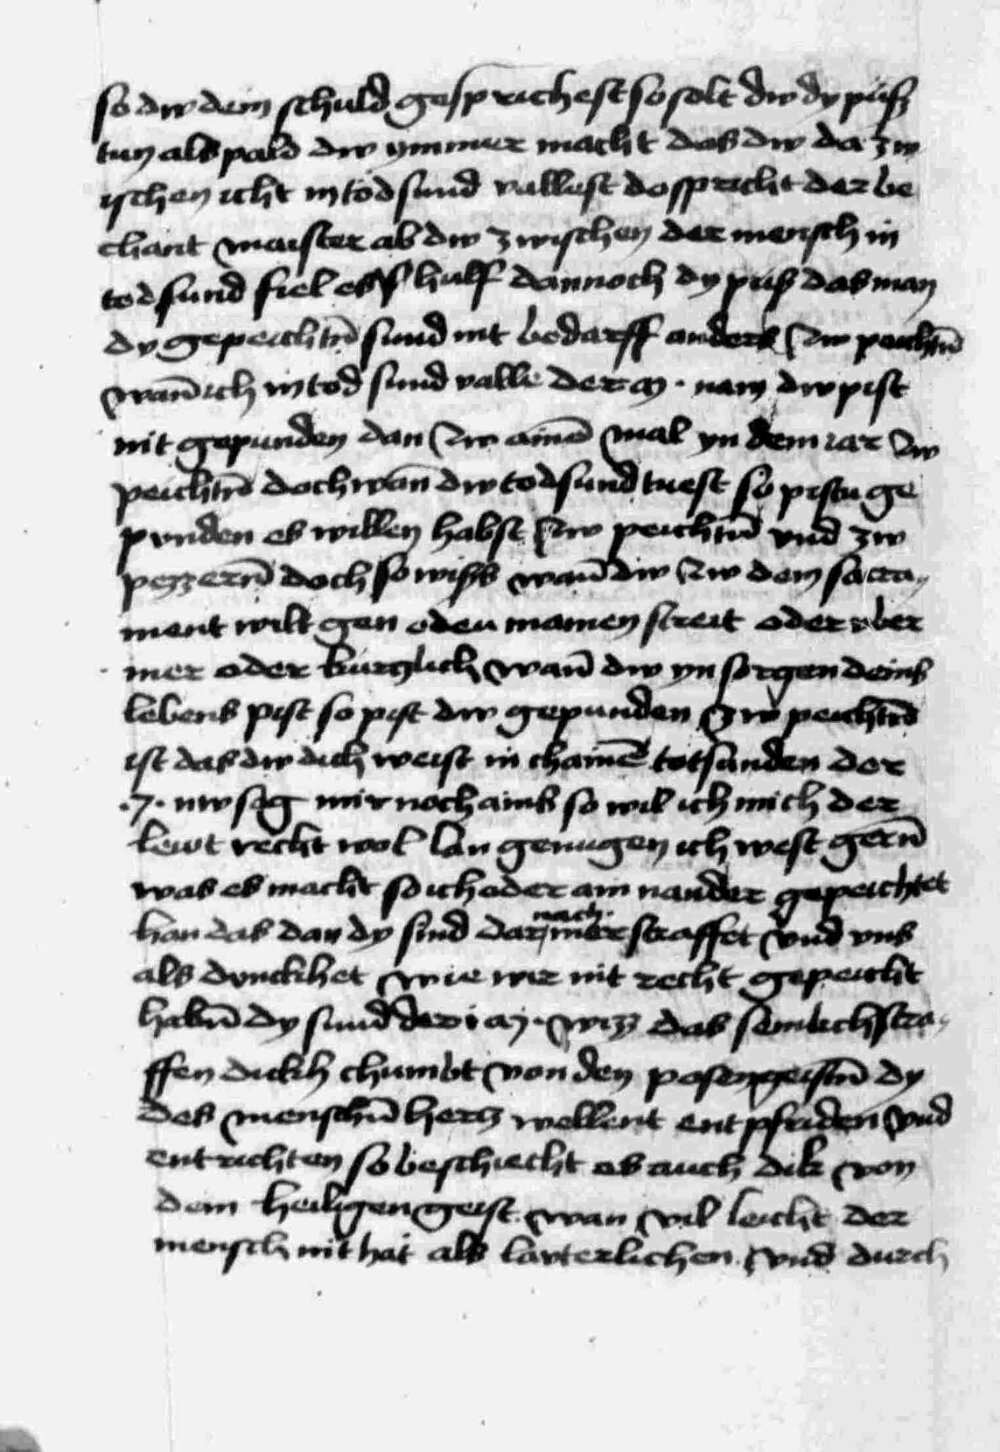 so dw dein schuld gesprichest so solt dw dy půsz
tun als pald dw ymmer macht das dw da zw
ischen icht in tod sund vallest do spricht der be
chant maister ab dw zwischen der mensch in
tod sund fiel es hulf dannoch dy půs das man
dy gepeichtn̄ sund nit bedarff anders zw peichtn̄
wan̄ ich in tod sund valle der m · nain dw pist
nit gepunden dan zw aīne mal yn dem iar zw
peichtn̄ doch wan̄ dw tod sund tuest so pistu ge
punden es willen habst zw peichtn̄ vnd zw
pezzern̄ doch so wiss wan̄ dw zw dem sacra„
ment wilt gen oder in ainen streit oder vber
mer oder kurczlich wan̄ dw yn sorgen deins
lebens pist so pist dw gepunden zw peichtn̄
ist das dw dich weist in chainē totsunden der
·7· nw sag mir noch ains so wil ich mich der
lewt recht wol lan genugen ich west gern̄
was es macht so ich oder ain nander gepeichtet
han das dan dy sind dar nach mer straffet vnd vns
als dunckhet wie wir nit recht gepeicht
habn̄ dy sund der i m · wizz das semlich stra„
ffen dickh chumbt von den posen geistn̄ dy
des menschn̄ hercz wellent entpfriden vnd
entrichten so beschiecht es auch dik von
dem heiligen geist wan vil leicht der
mensch nit hat als lauterlichen vnd durch